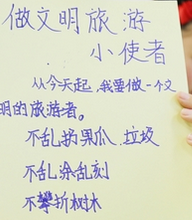 做文明旅游
小使者
从今天起,我要做一个文
明的旅游者。
不乱扔果爪、垃圾
不乱涂乱刻
不攀折树木